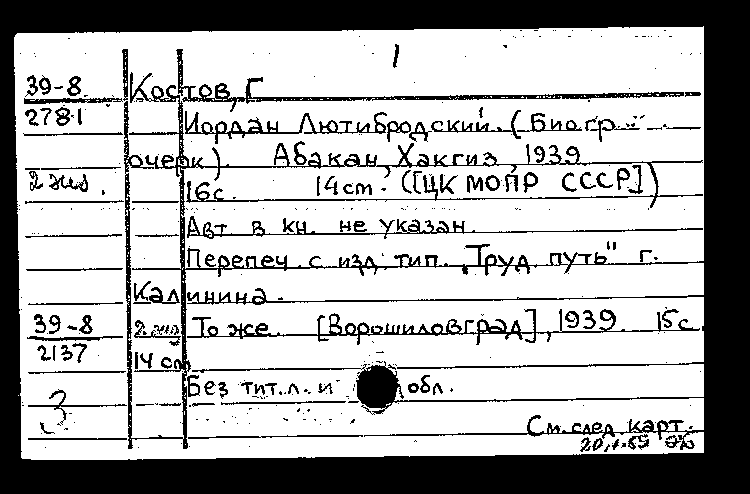 1
39-8 Костов, Г
2781 Иордан Лютибродский. (Биогр
очерк). Абакан, Хакгиз, 1939
2 экз. 16с. 14cm. ([ЦК МОПР СССР])
Авт в кн. не указан.
Перепеч. с изд. тип. „Труд. путь" г.
Калинина.
39-8 2 экз То же. [Ворошиловград], 1939. 15с.
2137 14 cm
Без тит. л. и обл.
3
См. след. карт.